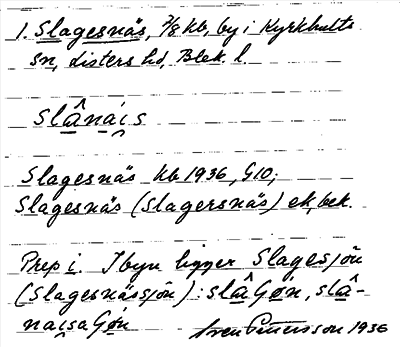 1. Slagesnäs, 7/8 kb, by i Kyrkhults
sn, Listers hd, Blek. l.
slânai̭s
Slagesnäs kb 1936, G10;
Slagesnäs (Slagersnäs) ek, bek.
Prep i. I byn ligger Slagesjön
(Slagesnässjön): slâGøn, slâ-
nai̭saGøn
Sven Pettersson 1936